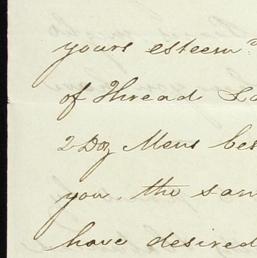 yours esteemd
of Thread La
2 Doz Mens bes
you, the sam
have desired